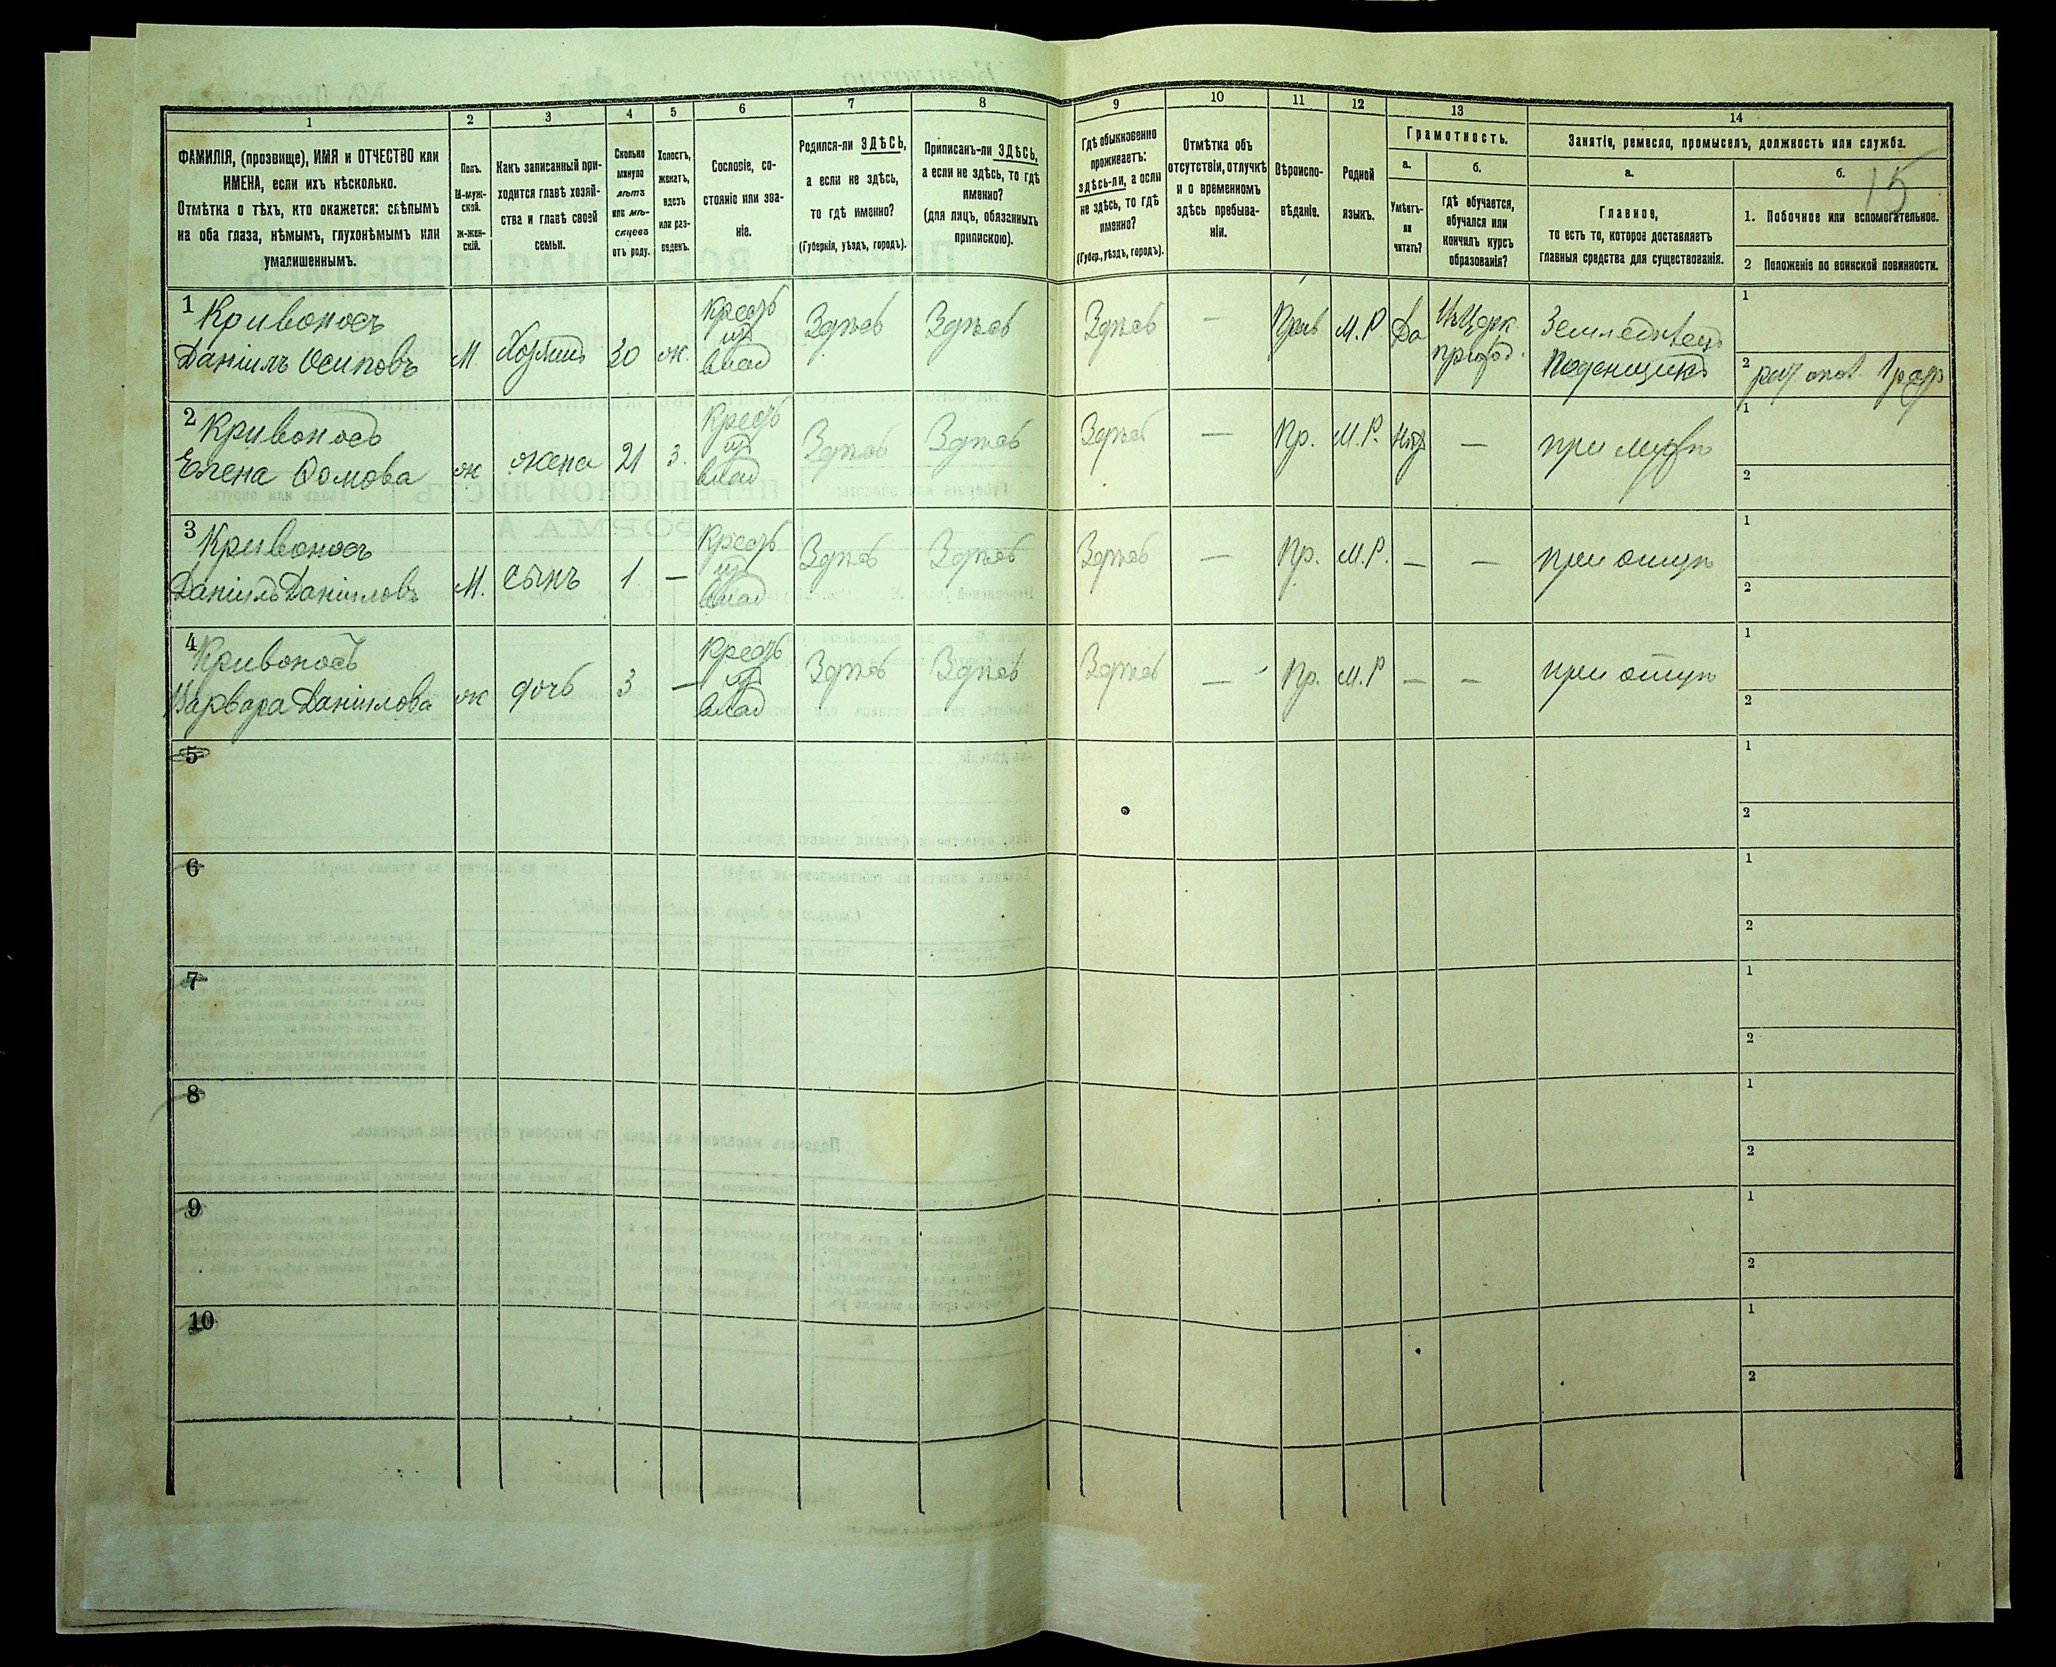 1 2 3 4 5 6 7 8 9 10 11 12 13 14
ФАМИЛІЯ, (прозвище), ИМЯ и ОТЧЕСТВО или
ИМЕНА, если ихъ нѣсколько.
Отмѣтка о тѣхъ, кто окажется: слѣпымъ
на оба глаза, нѣмымъ, глухонѣмымъ или
умалишеннымъ.
Полъ.
М-муж-
ской.
ж-жен-
скій.
Какъ записанный при-
ходится главѣ хозяй-
ства и главѣ своей
семьи.
Сколько
минуло
лѣтъ
или мѣ-
сяцевъ
отъ роду.
Холостъ,
женатъ,
вдовъ
или раз-
веденъ.
Сословіе, со-
стояніе или зва-
ніе.
Родился-ли ЗДѢСЬ,
а если не здѣсь,
то гдѣ именно?
(Губернія, уѣздъ, городъ).
Приписанъ-ли ЗДѢСЬ,
а если не здѣсь, то гдѣ
именно?
(для лицъ, обязанныхъ
припискою).
Гдѣ обыкновенно
проживаетъ:
здѣсь-ли, а если
не здѣсь, то гдѣ
именно?
(Губер., уѣздъ, городъ).
Отмѣтка объ
отсутствіи, отлучкѣ
и о временномъ
здѣсь пребыва-
ніи.
Вѣроиспо-
вѣданіе.
Родной
языкъ.
Грамотность.
а.
Умѣетъ-
ли
читать?
б.
гдѣ обучается,
обучался или
кончилъ курсъ
образованія?
Занятіе, ремесло, промыселъ, должность или служба.
а.
Главное,
то есть то, которое доставляетъ
главныя средства для существованія.
б.
15
1. Побочное или вспомогательное.
2 Положеніе по воинской повинности.
1 Кривоносъ
Даніилъ Осиповъ
М. Хозяинъ 30 ж.
Крестъ
из
влад
Здѣсь Здѣсь Здѣсь — Прав М.Р. Да
Ц. Церк.
приход.
Земледѣлецъ
Поденщикъ
1
2
2 Кривоносъ
Елена Фомова
ж жена 21 з.
Крестъ
из
влад
Здѣсь Здѣсь Здѣсь — Пр. М.Р. Нѣтъ — при мужѣ
1
2
3 Кривоносъ
Даніилъ Даніиловъ
М. сынъ 1 —
Крестъ
из
влад
Здѣсь Здѣсь Здѣсь — Пр. М.Р. — — при отцѣ
1
2
4 Кривоносъ
Варвара Даніилова
ж дочь 3 —
Крестъ
из
влад
Здѣсь Здѣсь Здѣсь — Пр. М.Р — — при отцѣ
1
2
5
1
2
6
1
2
7
1
2
8
1
2
9
1
2
10
1
2